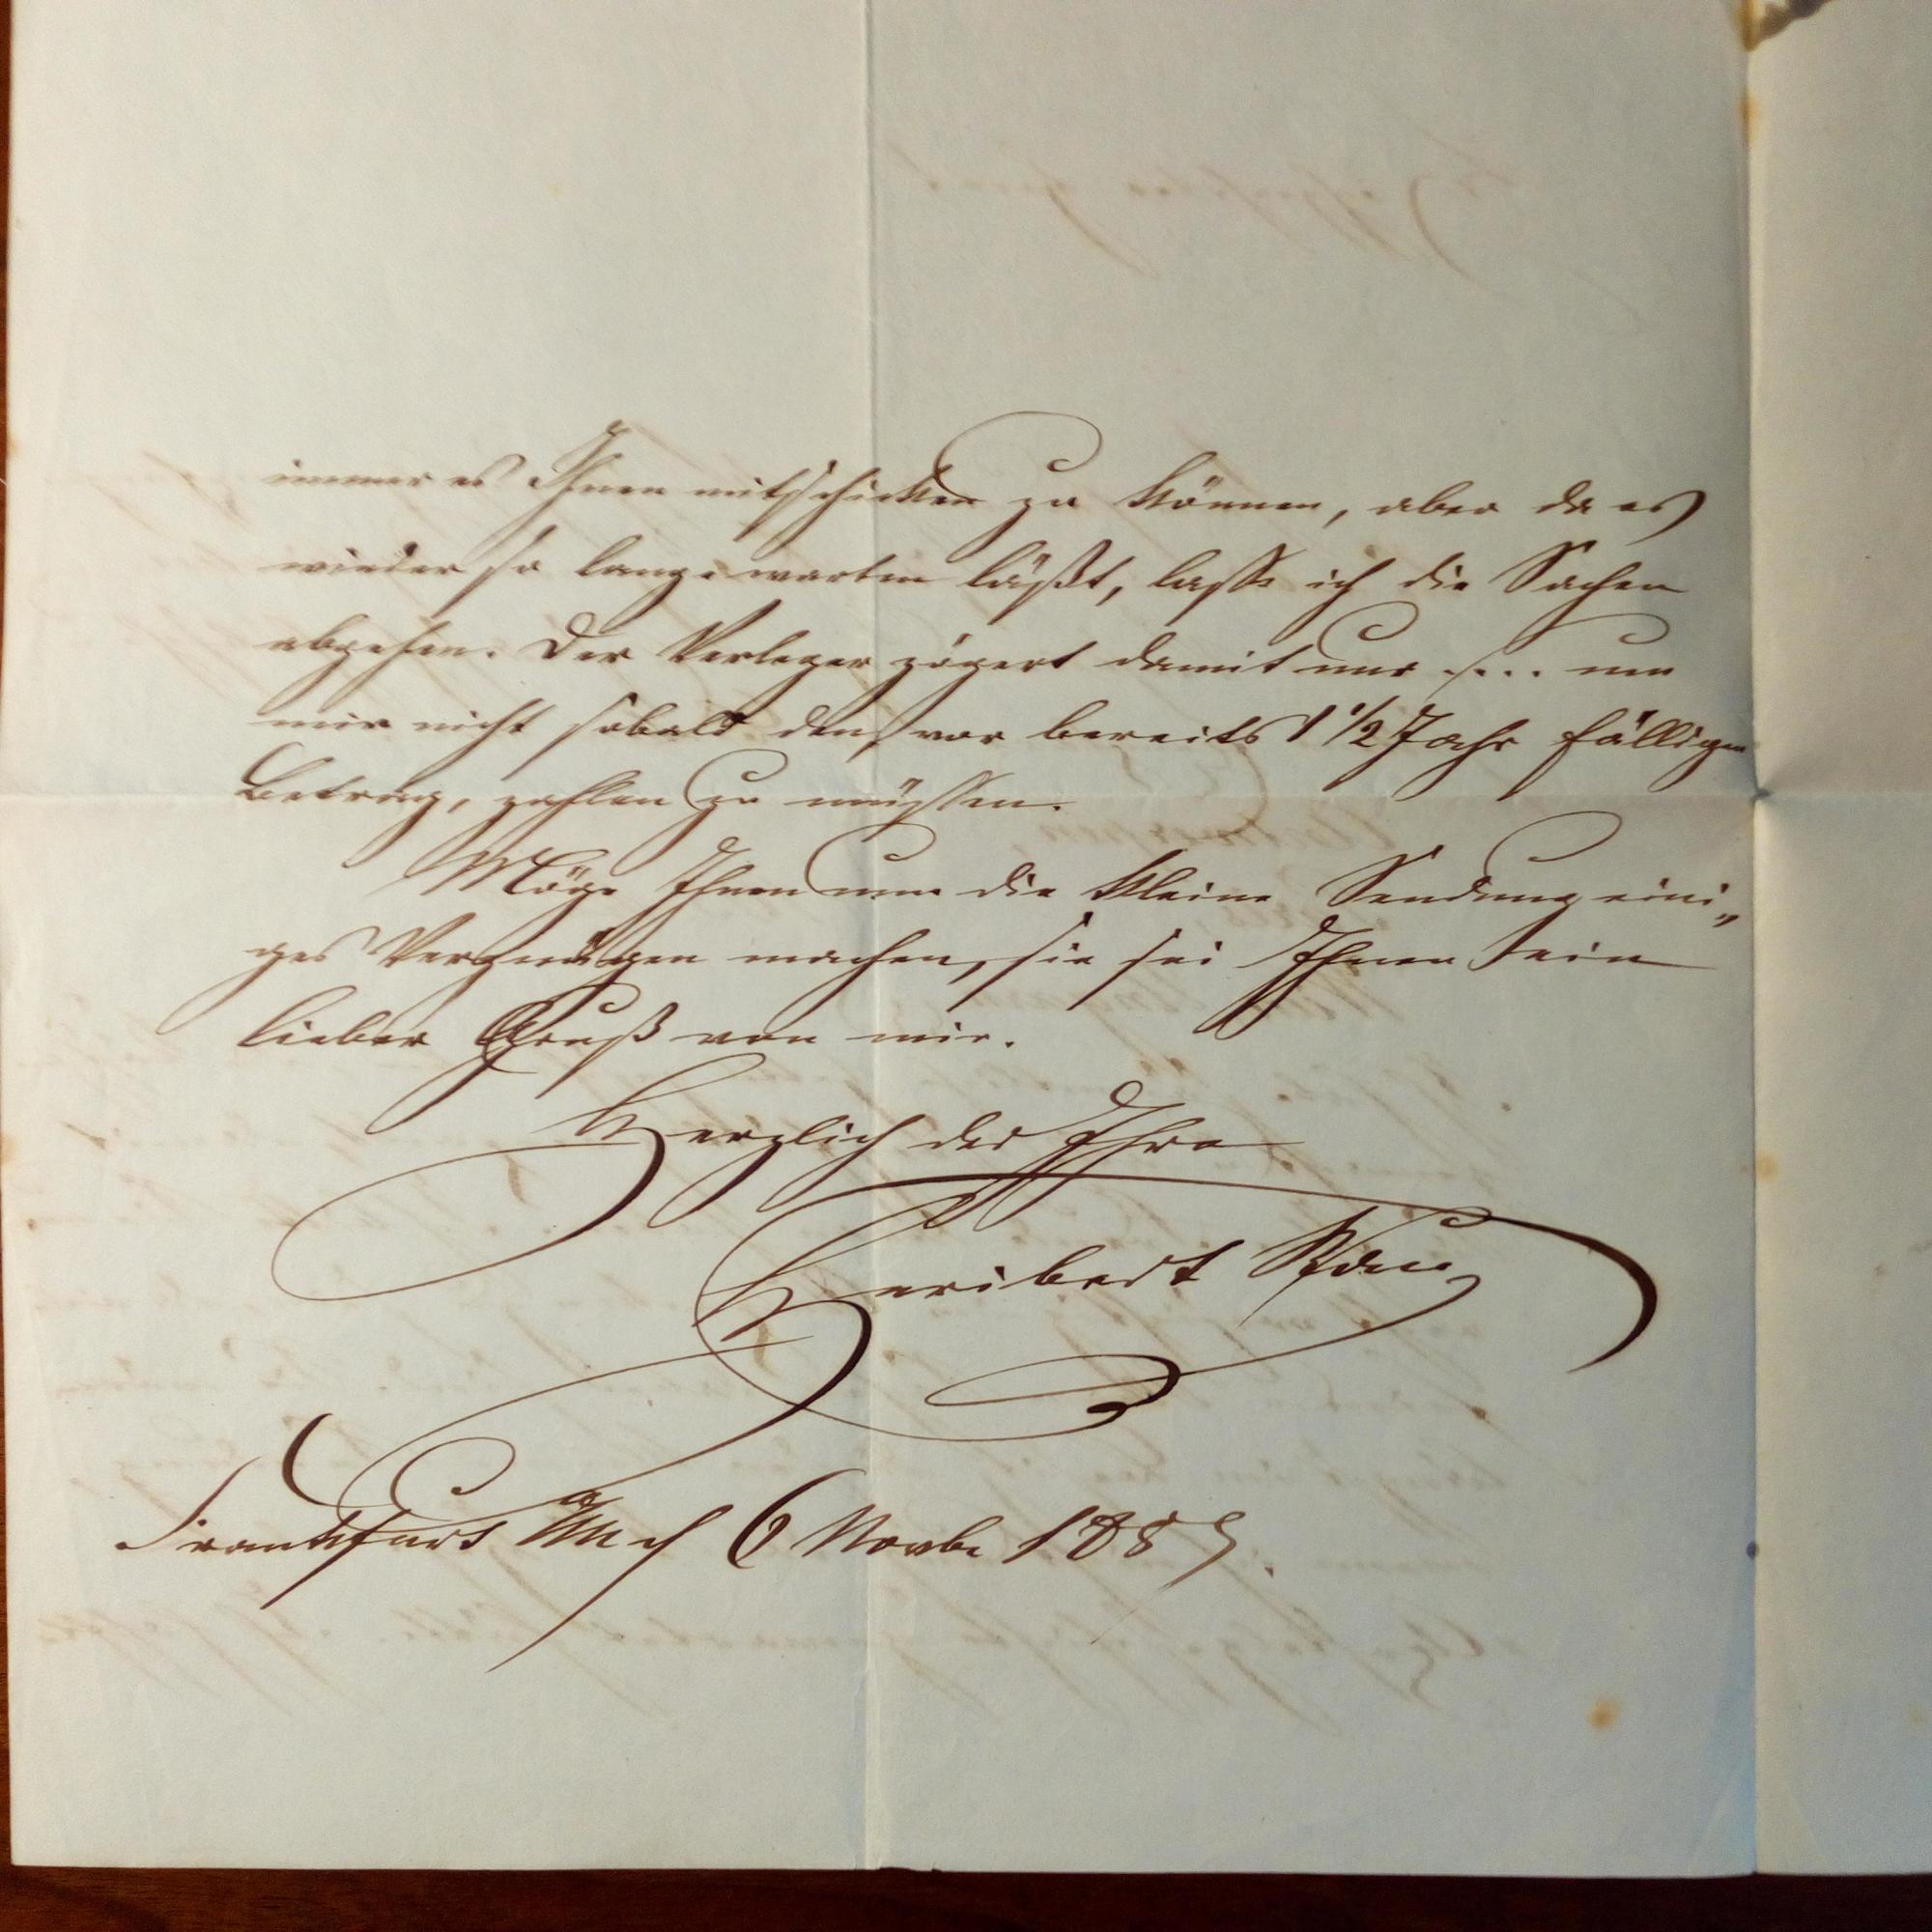 immer es Ihnen mitschicken zu können, aber da es
wieder so lange warten läßt, lasse ich die Sachen
abgehen. Der Verleger zögert damit nur .... um
mir nicht sobald den, vor bereits 1 1/2 Jahr fälligen
Betrag, zahlen zu müssen.
Möge Ihnen nun die kleine Sendung eini„
ges Vergnügen machen, sie sei Ihnen ein
lieber Gruß von mir.
Herzlich der Ihre
Heribert Rau
Frankfurt 6 Novbr